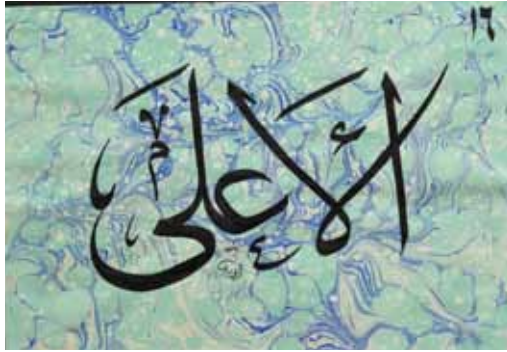 ١٦
الأعلى